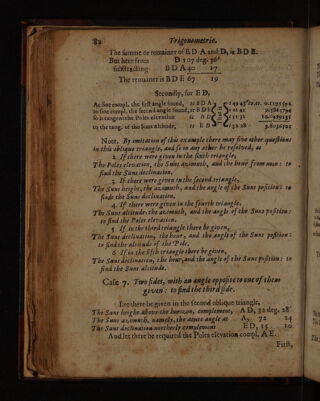 82 Trigonometrie.
The summe or remainer of E D A and D, is B D E.
But here from D 107 deg. 36'
substracting B D A 40 17
The remainer is B D E 67 19
Secondly, for E D,
As sine compl. the first angle found, B D A
is sine compl. the second angle found, B D E
So is tangent the Poles elevation A D
to the tang. of the Suns altitude, E D
Note. By imitation of this example there may five other questions
in this oblique triangle, and so in any other be resolved, as
2. If there were given in the sixth triangle,
The Poles elevation, the Suns azimuth, and the hour from noon: to
find the Suns declination.
3. If there were given in the second triangle,
The Suns height, the azimuth, and the angle of the Suns position: to
finde the Suns declination.
4. If there were given in the fourth triangle,
The Suns altitude, the azimuth, and the angle of the Suns position:
to find the Poles elevation.
5. If in the third triangle there be given,
The Suns declination, the hour, and the angle of the Suns position:
to finde the altitude of the Pole.
6. If in the fifth triangle there be given,
The Suns declination, the hour, and the angle of the Suns position: to
find the Suns altitude.
Case 7. Two sides, with an angle opposite to one of them
given: to find the third side.
Let there be given in the second oblique triangle,
The Suns height above the horizon, complement, A D, 52 deg. 28'
The Suns azimuth, namely, the acute angle at A, 72 24
The Suns declination northerly complement E D, 15 10
And let there be required the Poles elevation compl. A E.
First,